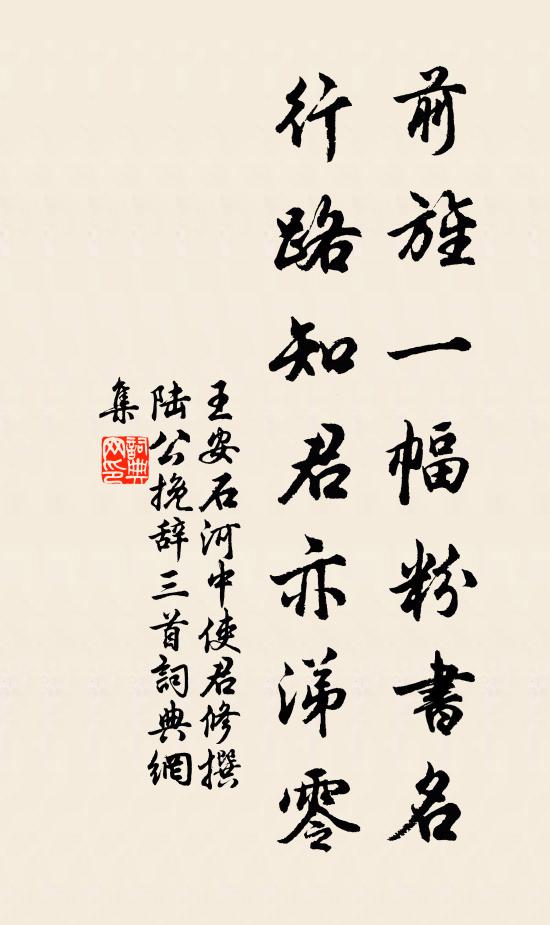 前旌一幅粉書名
行路知君亦涕零
王安石河中使君修撰
陆公挽辞三首詞典網
集
詞典
网印